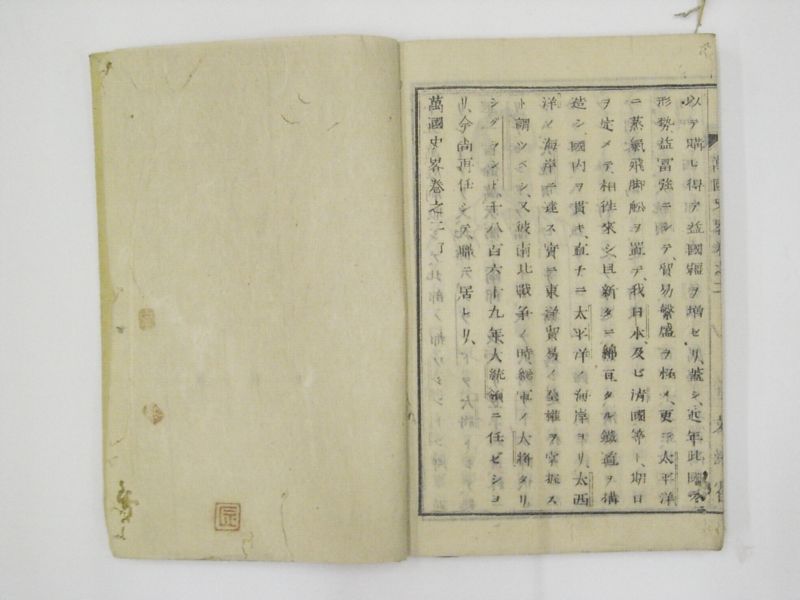 以テ購ヒ得テ益國疆ヲ増セリ、蓋シ、近年此國ノ
形勢、益富強ニシテ、貿易繁盛ヲ極メ、更ニ太平洋
ニ蒸氣飛脚舩ヲ置テ、我日本、及ビ清國等ト、期日
ヲ定メテ、相徃來シ、且新タニ綿亘タル鐵道ヲ搆
造シ、國内ヲ貫キ、直チニ太平洋ノ海岸ヨリ、太西
洋ノ海岸ニ達ス、實ニ東洋貿易ノ全權ヲ掌握ス
ト謂ツベシ、又彼南北戰爭ノ時、總軍ノ大將タリ
シグラント、千八百六十九年、大統領ニ任ゼシヨ
リ、今尚再任シテ、職ニ居レリ、
萬國史畧卷之二
萬國史畧卷之二